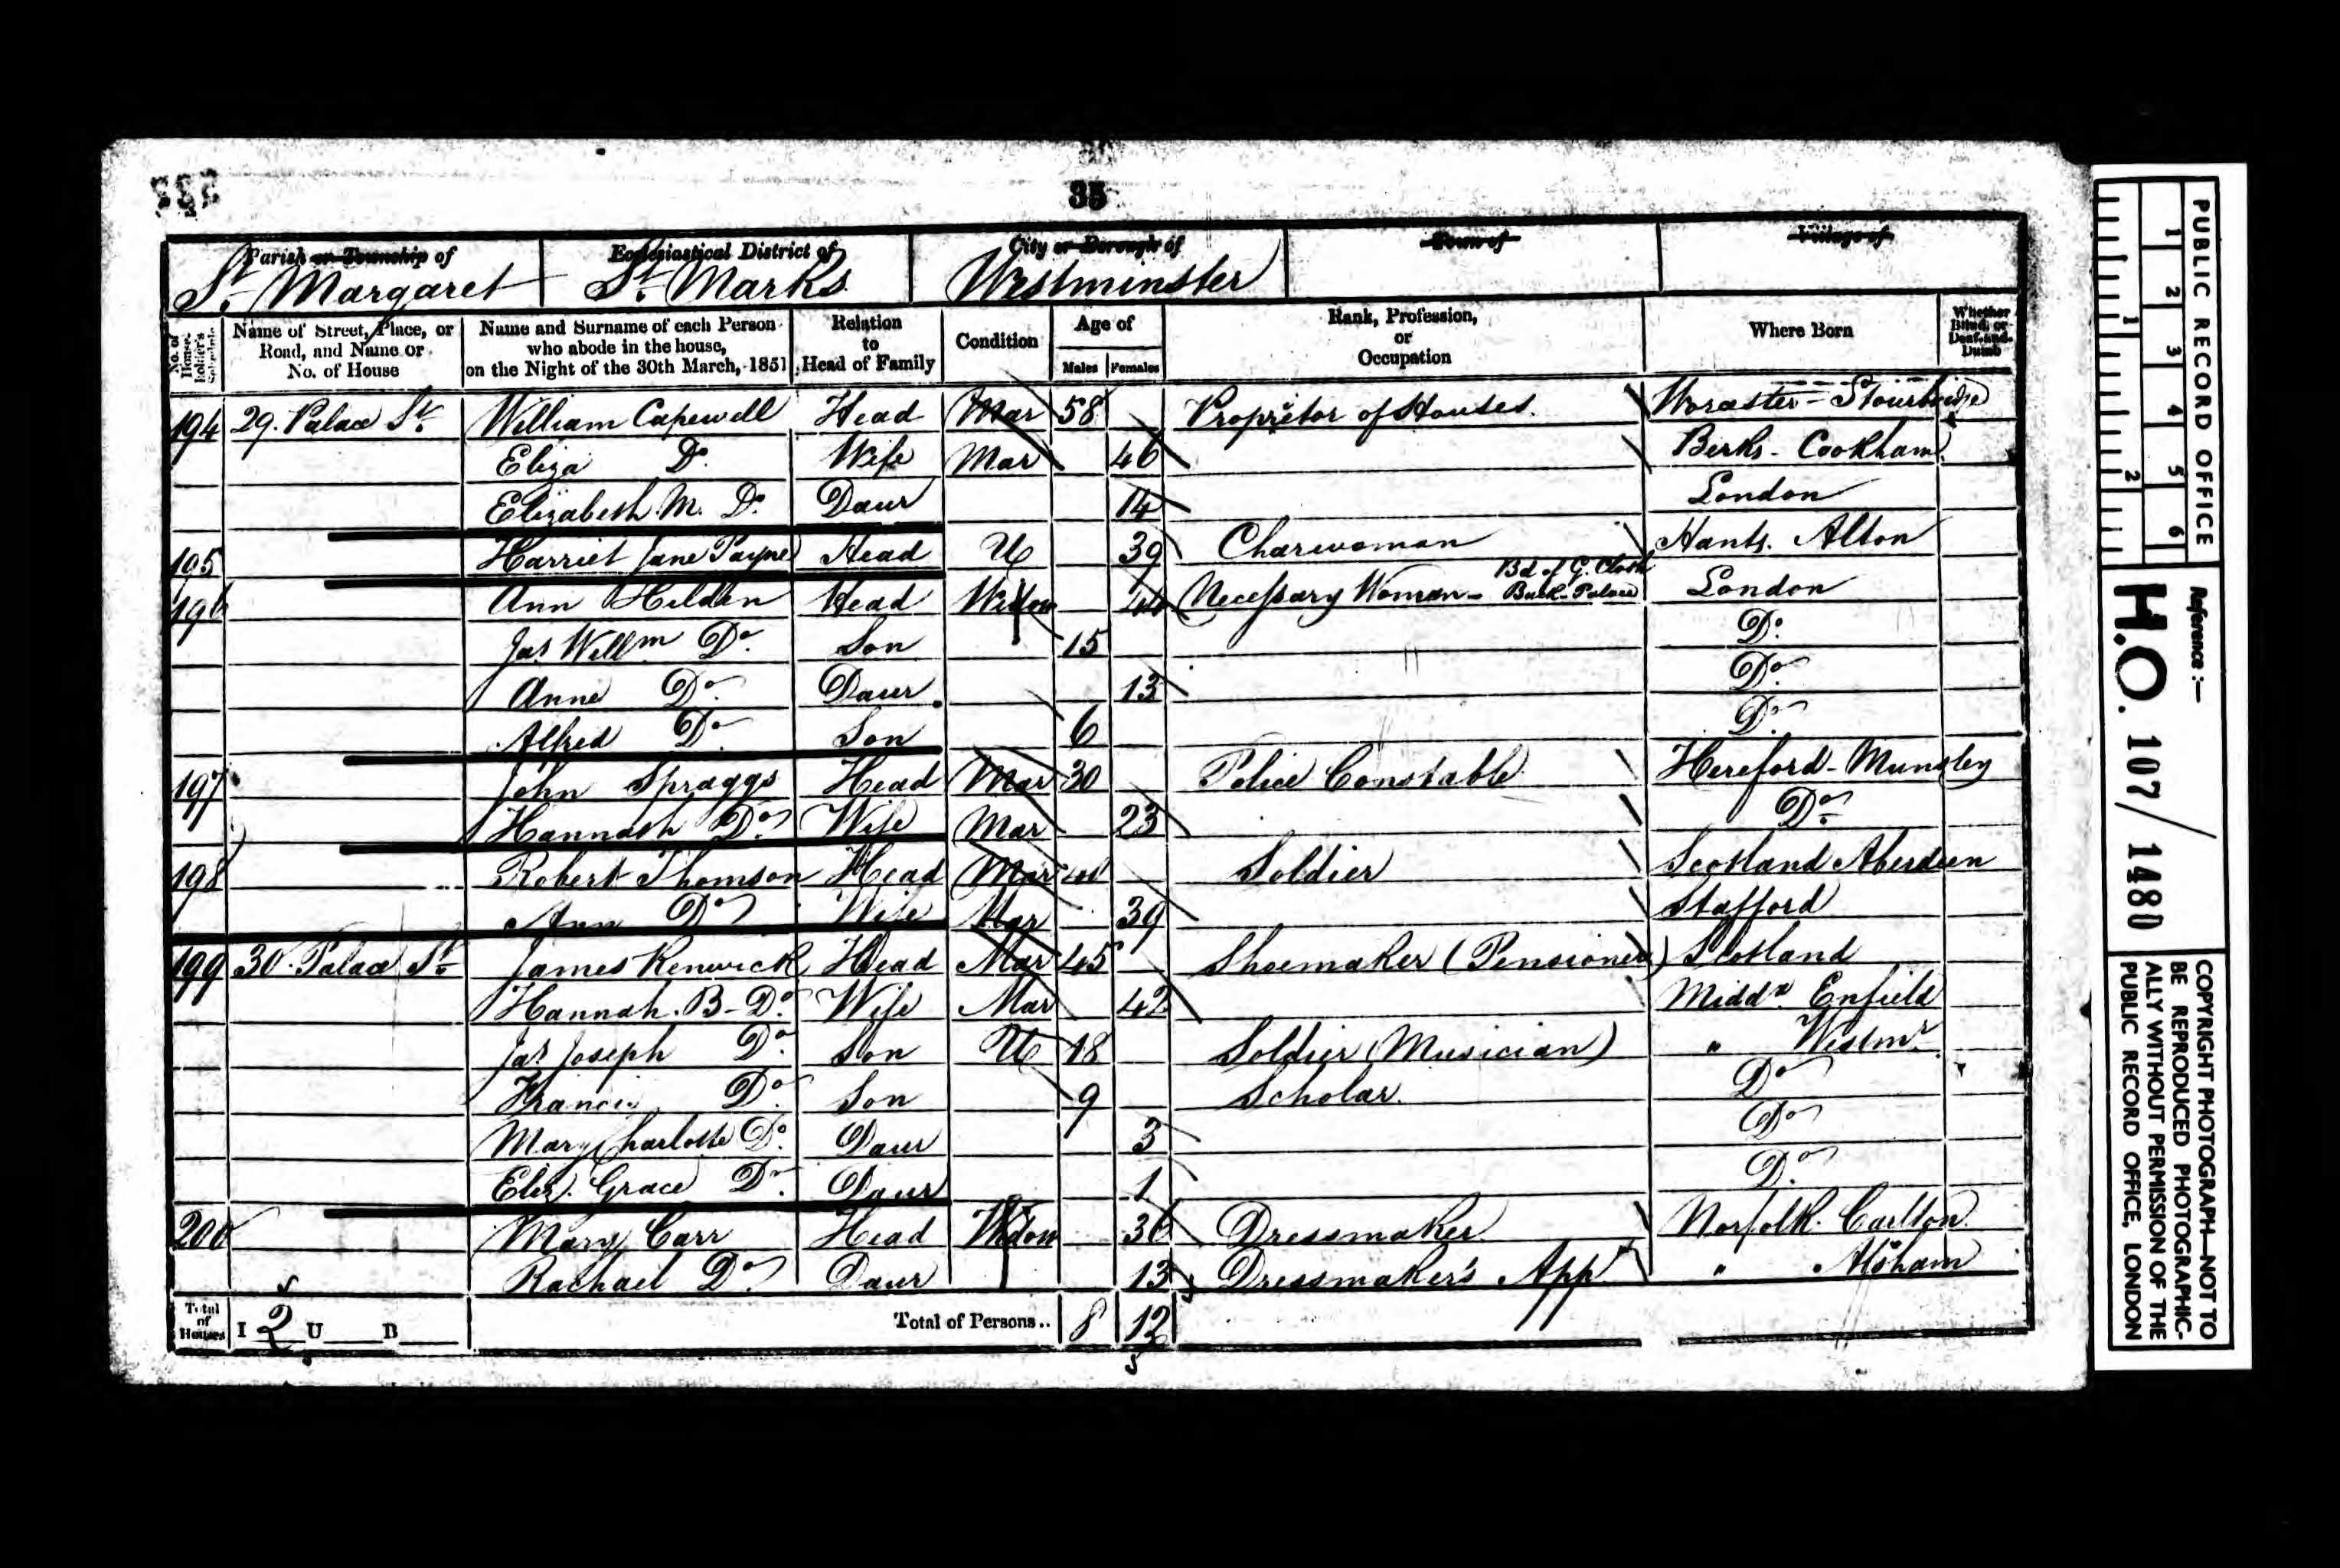 35
Parish or Township of Ecclesiastical District of City or Borough of Town of Village of
St. Margaret St. Marks Westminster
No. of House-holder's Schedule Name of Street, Place, or Road, and Name or No. of House Name and Surname of each Person who abode in the house, on the Night of the 30th March, 1851 Relation to Head of Family Condition Age of Males Females Rank, Profession, or Occupation Where Born Whether Blind, or Deaf-and-Dumb
194 29. Palace St. William Capewell Head Mar 58 Proprietor of Houses. Worcester - Stourbridge
Eliza Do. Wife Mar 46 Berks - Cookham
Elizabeth M. Do. Daur 14 London
195 Harriet Jane Payne Head U 39 Charwoman Hants. Alton
196 Ann Hilden Head Widow 44 Necessary Woman - Bd of G. Cloth Buck-Palace London
Jas Willm Do. Son 15 Do.
Anne Do. Daur. 13 Do.
Alfred Do. Son 6 Do.
197 John Spraggs Head Mar 30 Police Constable Hereford - Munsley
Hannah Do. Wife Mar 23 Do.
198 Robert Thomson Head Mar Soldier Scotland Aberdeen
Ann Do. Wife Mar 39 Stafford
199 30. Palace St. James Renwick Head Mar 45 Shoemaker (Pensioner) Scotland
Hannah. B - Do. Wife Mar 42 Middx. Enfield
Jas Joseph Do. Son U 18 Soldier (Musician) " Westmr.
Francis Do. Son 9 Scholar. Do.
Mary Charlotte Do. Daur 3 Do.
Eliz. Grace Do. Daur 1 Do.
200 Mary Carr Head Widow 36 Dressmaker Norfolk. Carlton.
Rachael Do. Daur 13 Dressmaker's App " Alsham
Total of Houses I 2 U B Total of Persons.. 8 12
PUBLIC RECORD OFFICE
1 2 3 4 5 6
1 2
Reference :-
H.O. 107/1480
COPYRIGHT PHOTOGRAPH—NOT TO
BE REPRODUCED PHOTOGRAPHIC-
ALLY WITHOUT PERMISSION OF THE
PUBLIC RECORD OFFICE, LONDON